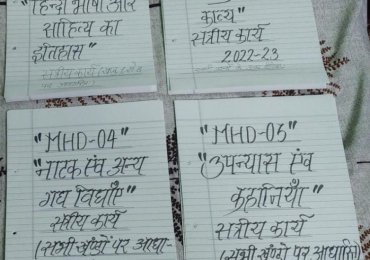 "हिन्दी भाषा और
साहित्य का
इतिहास"
सत्रीय कार्य
काव्य"
सत्रीय कार्य
2022-23
"MHD-04"
"नाटक एंव अन्य
गद्य विधाएँ"
सत्रीय कार्य
(सभी खण्डों पर आधा-
"MHD-05"
"उपन्यास एंव
कहानियाँ"
सत्रीय कार्य
(सभी खण्डों पर आधारित)